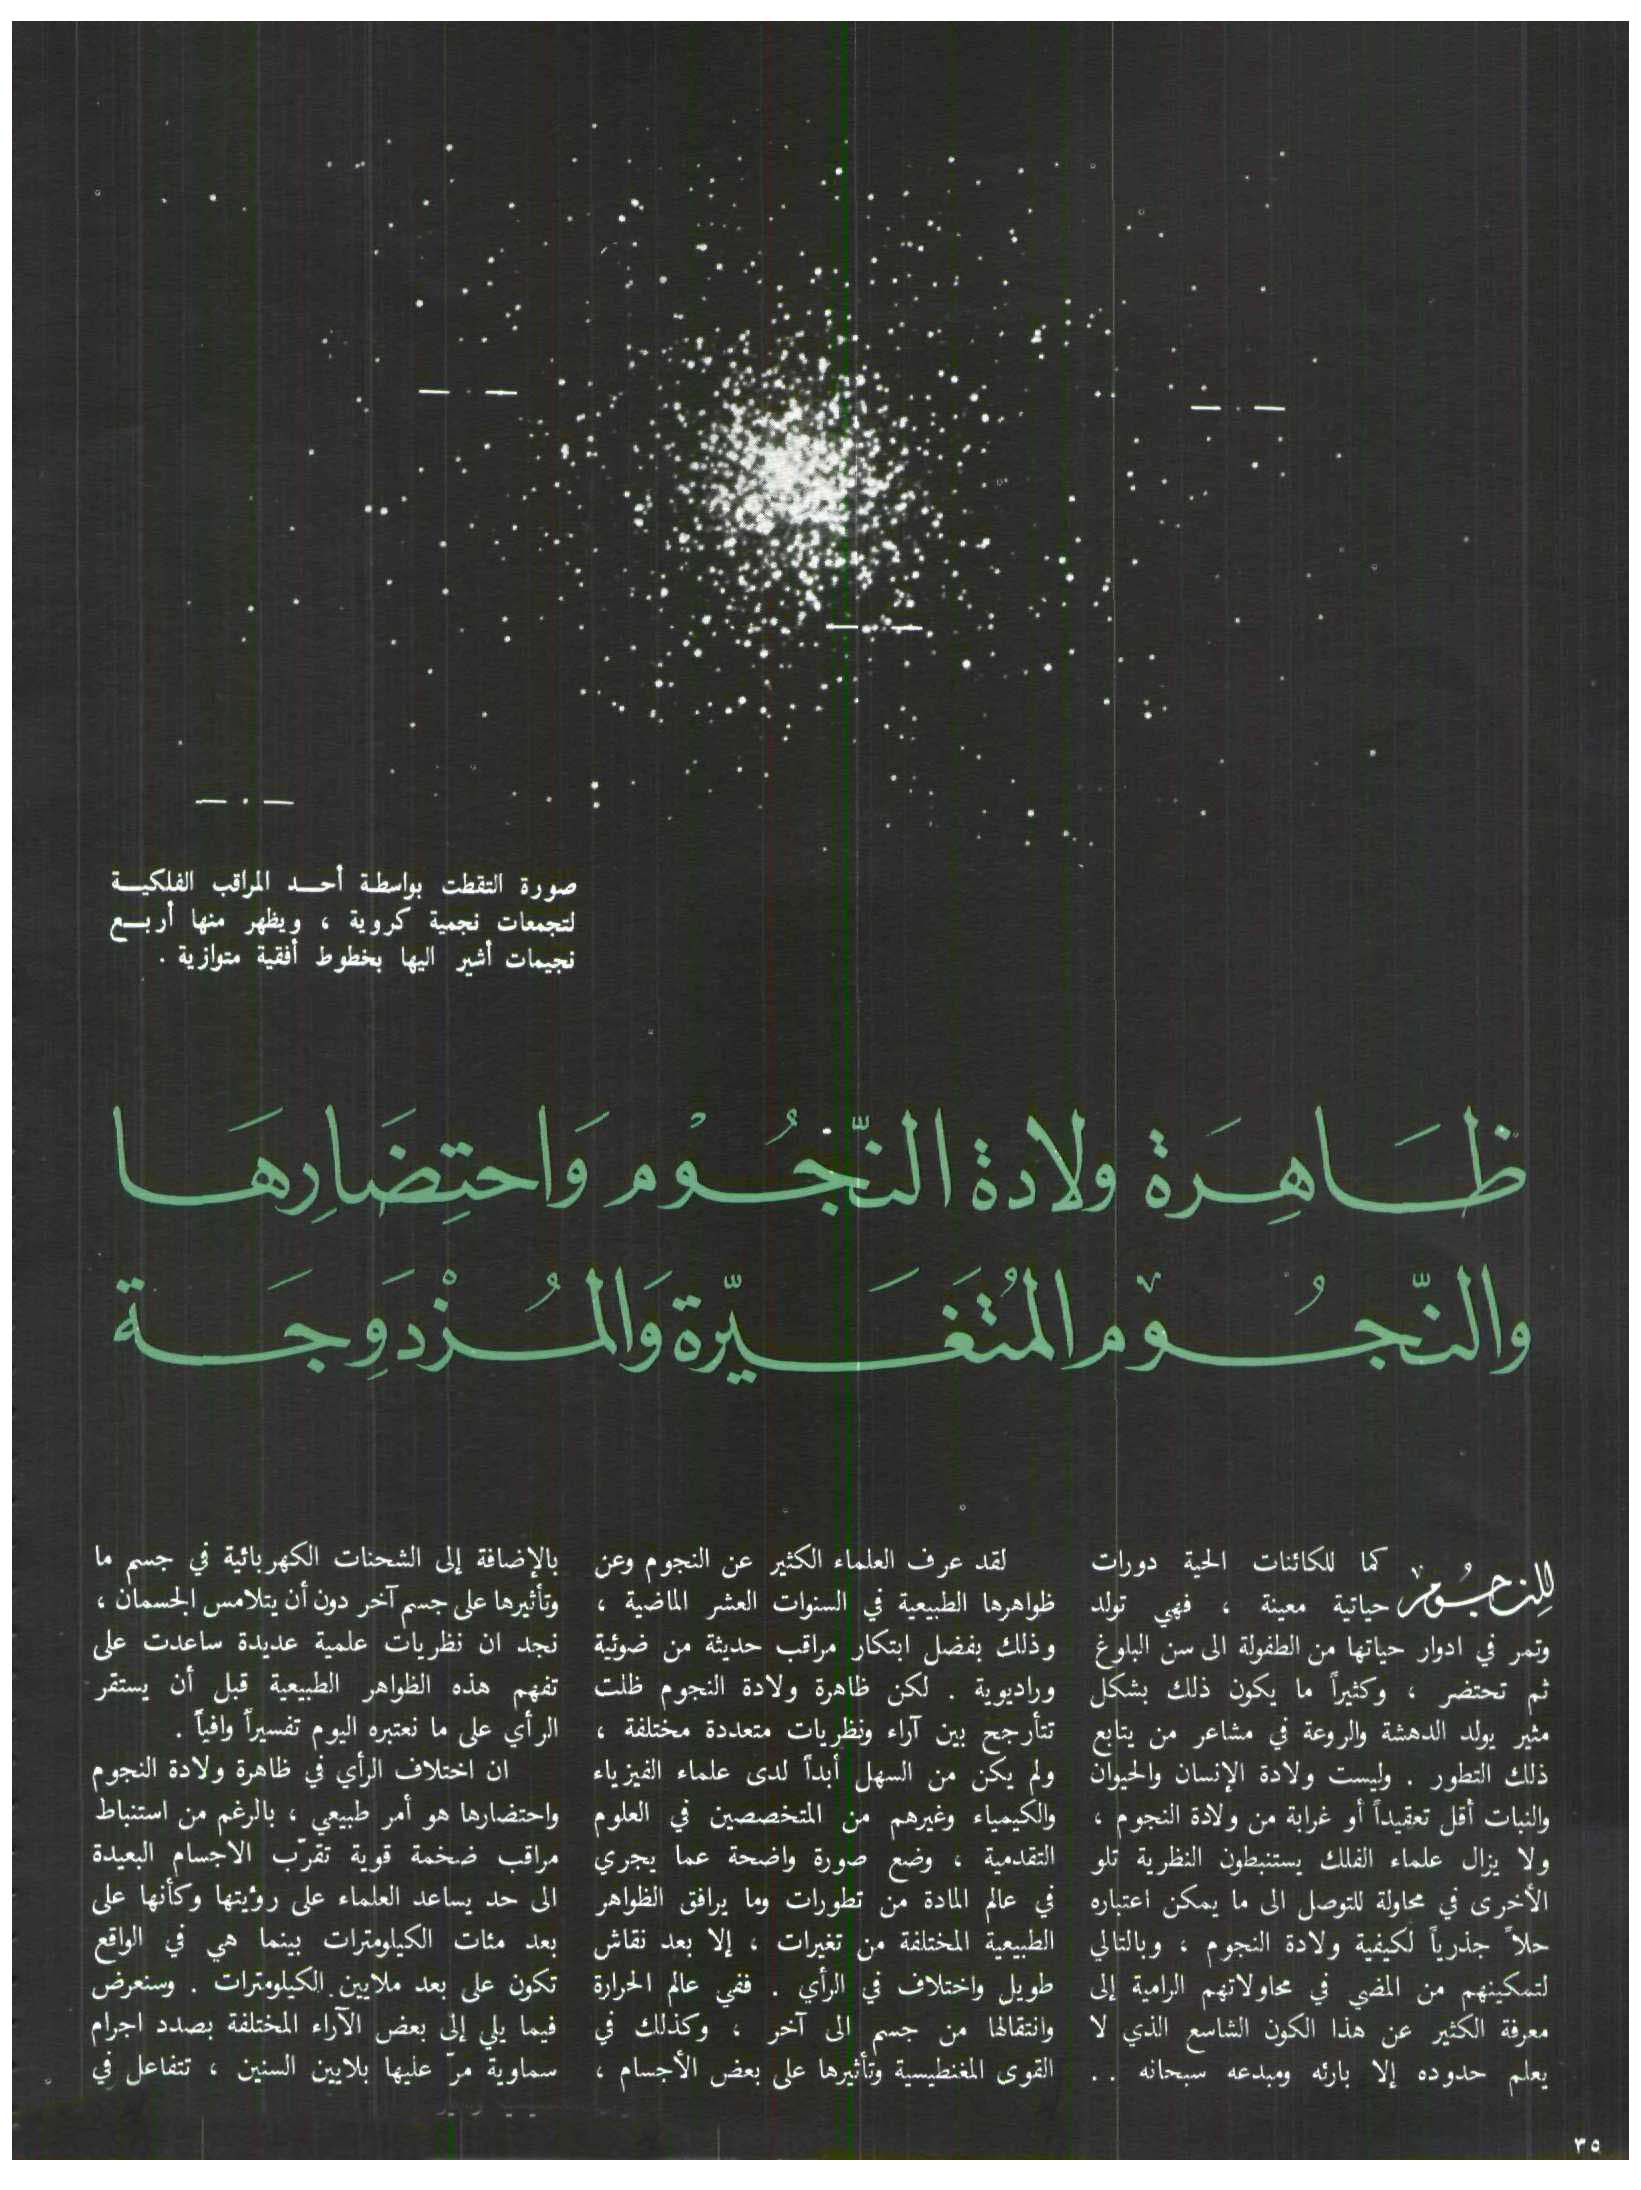 صورة التقطت بواسطة أحد المراقب الفلكية
لتجمعات نجمية كروية ، ويظهر منها أربع
نجيمات أشير اليها بخطوط أفقية متوازية .
ظَاهِرَة ولادة النّجُوْم وَاحتِضَارِهَا
والنّجُوْم المُتَغَيّرة وَالمُزْدوِجَة
للنجُوم كما للكائنات الحية دورات
حياتية معينة ، فهي تولد
وتمر في ادوار حياتها من الطفولة الى سن البلوغ
ثم تحتضر ، وكثيراً ما يكون ذلك بشكل
مثير يولد الدهشة والروعة في مشاعر من يتابع
ذلك التطور . وليست ولادة الإنسان والحيوان
والنبات أقل تعقيداً أو غرابة من ولادة النجوم ،
ولا يزال علماء الفلك يستنبطون النظرية تلو
الأخرى في محاولة للتوصل الى ما يمكن اعتباره
حلاً جذرياً لكيفية ولادة النجوم ، وبالتالي
لتمكينهم من المضي في محاولاتهم الرامية إلى
معرفة الكثير عن هذا الكون الشاسع الذي لا
يعلم حدوده إلا بارئه ومبدعه سبحانه ..
لقد عرف العلماء الكثير عن النجوم وعن
ظواهرها الطبيعية في السنوات العشر الماضية ،
وذلك بفضل ابتكار مراقب حديثة من ضوئية
وراديوية . لكن ظاهرة ولادة النجوم ظلت
تتأرجح بين آراء ونظريات متعددة مختلفة ،
ولم يكن من السهل أبداً لدى علماء الفيزياء
والكيمياء وغيرهم من المتخصصين في العلوم
التقدمية ، وضع صورة واضحة عما يجري
في عالم المادة من تطورات وما يرافق الظواهر
الطبيعية المختلفة من تغيرات ، إلا بعد نقاش
طويل واختلاف في الرأي . ففي عالم الحرارة
وانتقالها من جسم الى آخر ، وكذلك في
القوى المغنطيسية وتأثيرها على بعض الأجسام ،
بالإضافة إلى الشحنات الكهربائية في جسم ما
وتأثيرها على جسم آخر دون أن يتلامس الجسمان ،
نجد ان نظريات علمية عديدة ساعدت على
تفهم هذه الظواهر الطبيعية قبل أن يستقر
الرأي على ما نعتبره اليوم تفسيراً وافياً .
ان اختلاف الرأي في ظاهرة ولادة النجوم
واحتضارها هو أمر طبيعي ، بالرغم من استنباط
مراقب ضخمة قوية تقرّب الاجسام البعيدة
الى حد يساعد العلماء على رؤيتها وكأنها على
بعد مئات الكيلومترات بينما هي في الواقع
تكون على بعد ملايين الكيلومترات . وسنعرض
فيما يلي إلى بعض الآراء المختلفة بصدد اجرام
سماوية مرّ عليها بلايين السنين ، تتفاعل في
٣٥